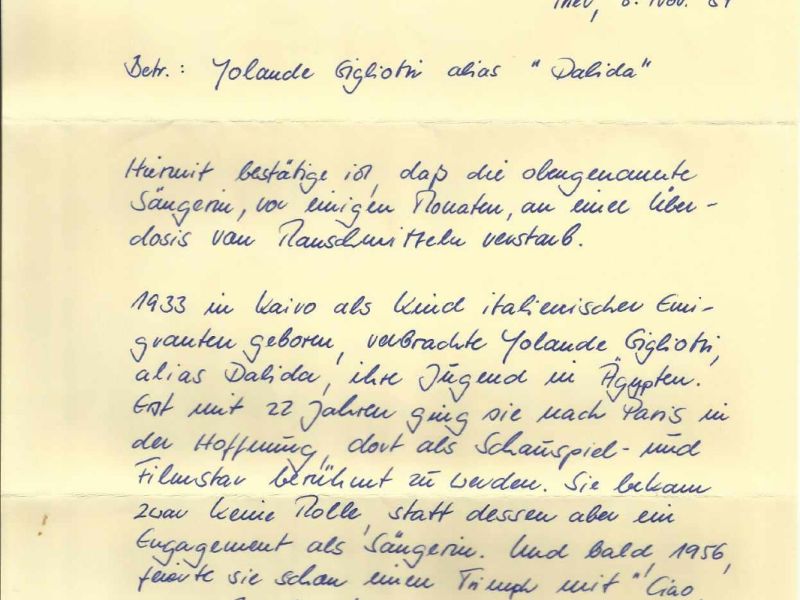 Trier, 6. Nov. 87
Betr.: Yolande Gigliotti alias "Dalida"
Hiermit bestätige ich, daß die obengenannte
Sängerin, vor einigen Monaten, an einer Über-
dosis von Rauschmitteln verstarb.
1933 in Kairo als Kind italienischer Emi-
granten geboren, verbrachte Yolande Gigliotti,
alias Dalida, ihre Jugend in Ägypten.
Erst mit 22 Jahren ging sie nach Paris in
der Hoffnung, dort als Schauspiel- und
Filmstar berühmt zu werden. Sie bekam
zwar keine Rolle, statt dessen aber ein
Engagement als Sängerin. Und bald, 1956,
feierte sie schon einen Triumph mit "Ciao,